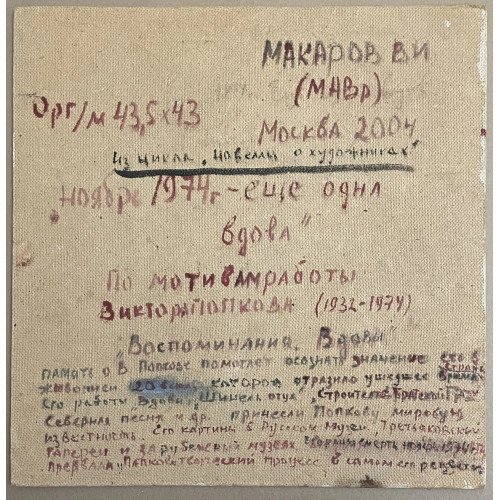 МАКАРОВ ВИ
(МАВр)
Орг/м 43,5х43
Москва 2004
Из цикла „Новеллы о художниках"
„Ноябрь 1974г – еще одна
вдова"
По мотивам работы
Виктора Попкова (1932-1974)
„Воспоминания. Вдовы"
ПАМЯТЬ О В Попкове помогает осознать значение его в
живописи 20 века, которое отразило ушедшее время
Его работы „Вдовы", Шинель отца", Строители Братской ГЭС
Северная песня и др. принесли Попкову мировую
известность. Его картины в Русском Музее, Третьяковской
Галереи и зарубежных музеях смерть
прервала Попкова творческий процесс в самом его расцвете